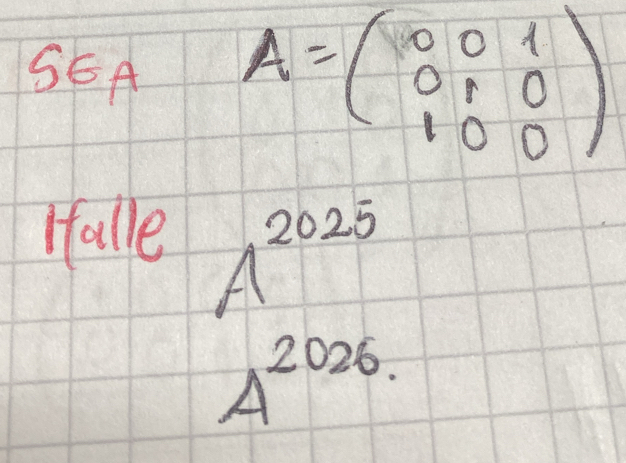 SEA A = ( 0 0 1
0 1 0
1 0 0 )
Halle A^2025
A^2026.